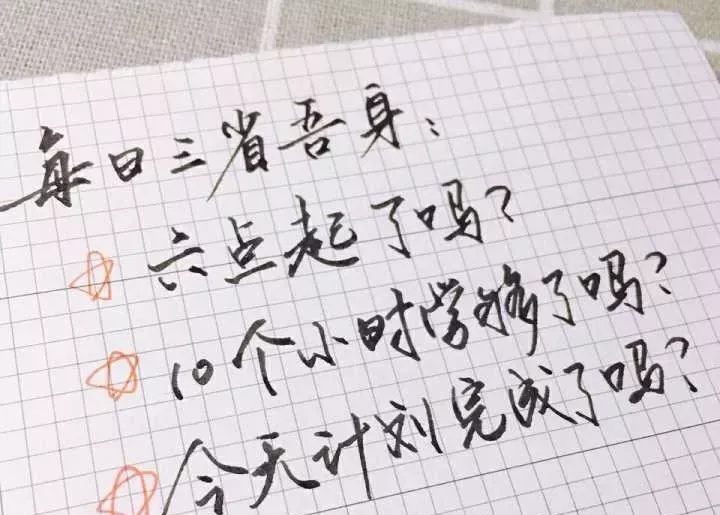 每日三省吾身:
六点起了吗?
10个小时学够了吗?
今天计划完成了吗?